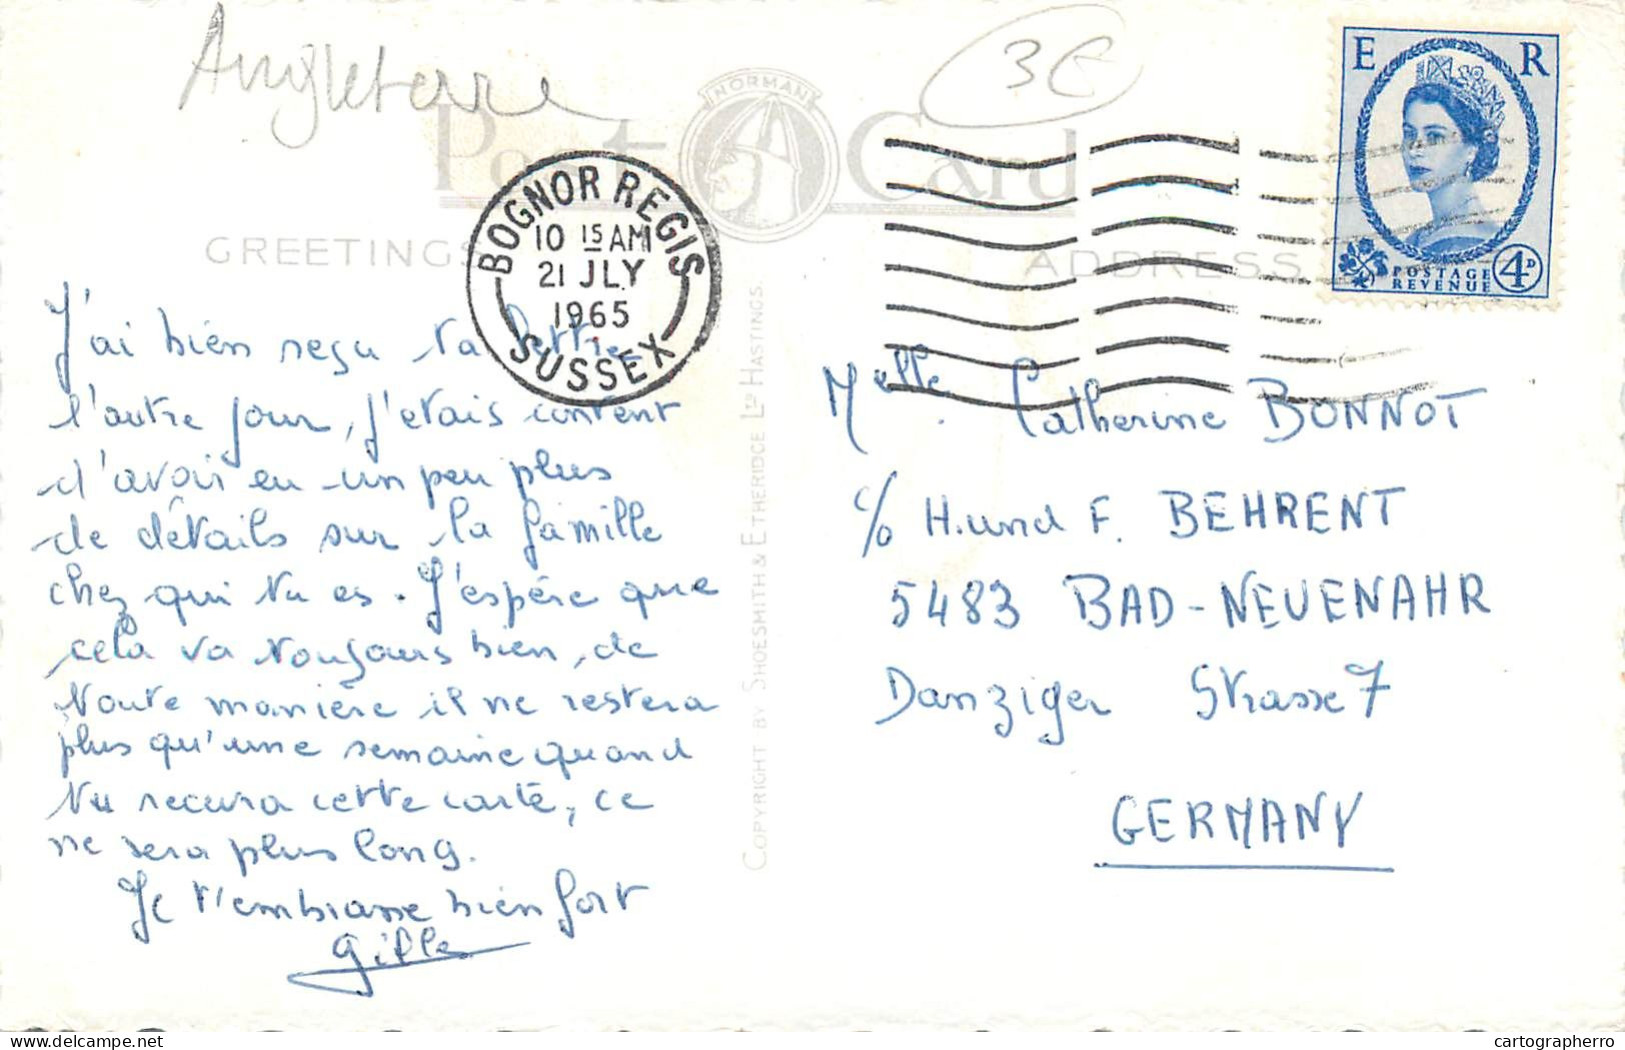 Angleterre
3€
NORMAN
Post Card
BOGNOR REGIS
10 15 AM
21 JLY
1965
SUSSEX
E R
POSTAGE
REVENUE
4D
GREETINGS
ADDRESS
J'ai bien reçu ta lettre
l'autre jour, j'etais content
d'avoir eu un peu plus
de détails sur la famille
chez qui tu es. J'espère que
cela va toujours bien, de
toute manière il ne restera
plus qu'une semaine quand
tu recevra cette carte, ce
ne sera plus long.
Je t'embrasse bien fort
Gilles
COPYRIGHT BY SHOESMITH & ETHERIDGE LTD HASTINGS.
Melle. Catherine BONNOT
c/o H.und F. BEHRENT
5483 BAD-NEUENAHR
Danziger Strasse 7
GERMANY
delcampe.net
cartographerro